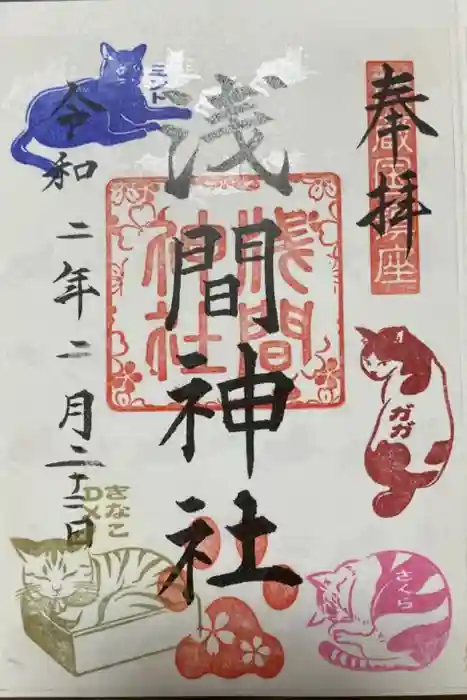 奉拝
ガガ
浅間神社
浅間
神社
ミント
令和二年二月二十二日
きなこ
DX
さくら